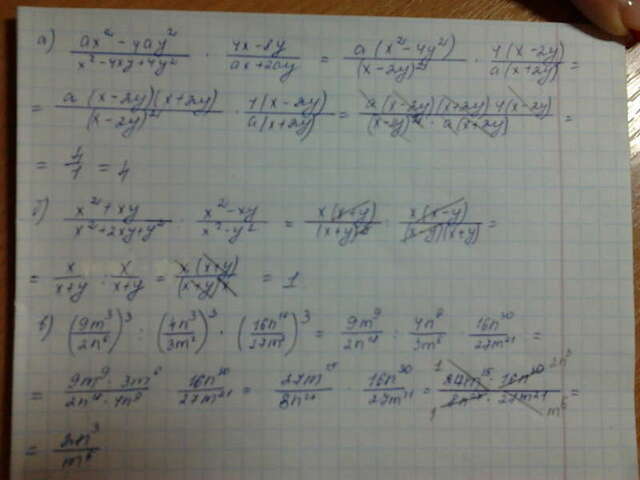 а) (ax² - 4ay²)/(x² - 4xy + 4y²) · (4x - 8y)/(ax + 2ay) = a(x² - 4y²)/(x - 2y)² · 4(x - 2y)/a(x + 2y) =
= a(x - 2y)(x + 2y)/(x - 2y)² · 4(x - 2y)/a(x + 2y) = a(x - 2y)(x + 2y) 4(x - 2y)/(x - 2y)² · a(x + 2y) =
= 4/1 = 4
б) (x² + xy)/(x² + 2xy + y²) : (x² - xy)/(x² - y²) = x(x + y)/(x + y)² : x(x - y)/(x - y)(x + y) =
= x/(x + y) : x/(x + y) = x(x + y)/(x + y)x = 1
в) (9m³/2n⁶)³ : (4n³/3m²)³ · (16n¹⁰/27m⁷)³ = 9m⁹/2n¹⁸ : 4n⁹/3m⁶ · 16n³⁰/27m²¹ =
= 9m⁹ · 3m⁶/2n¹⁸ · 4n⁹ · 16n³⁰/27m²¹ = 27m¹⁵/8n²⁷ · 16n³⁰/27m²¹ = 27m¹⁵ · 16n³⁰/8n²⁷ · 27m²¹ =
= 2n³/m⁶